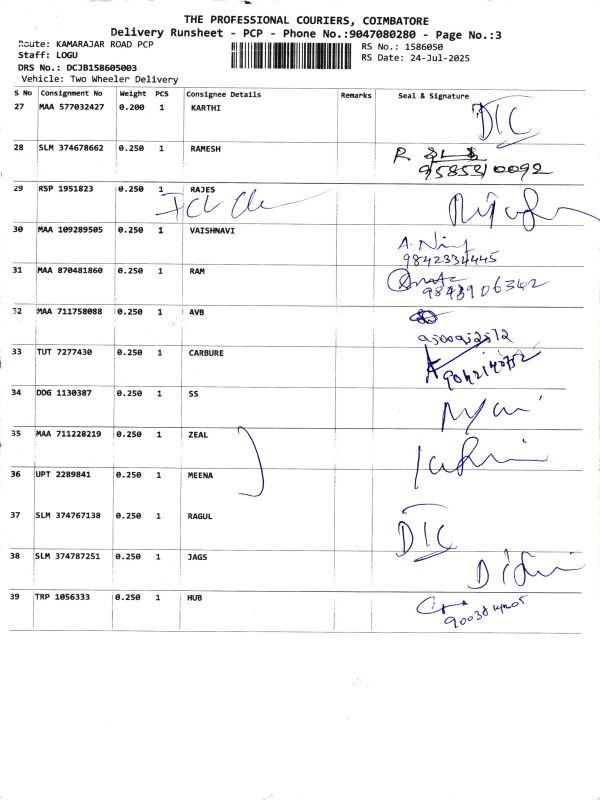 THE PROFESSIONAL COURIERS, COIMBATORE
Delivery Runsheet - PCP - Phone No.:9047080280 - Page No.:3
Route: KAMARAJAR ROAD PCP
RS No.: 1586050
Staff: LOGU
RS Date: 24-Jul-2025
DRS No.: DCJB158605003
Vehicle: Two Wheeler Delivery
S No Consignment No Weight PCS Consignee Details Remarks Seal & Signature
27 MAA 577032427 0.200 1 KARTHI DIC
28 SLM 374678662 0.250 1 RAMESH
29 RSP 1951823 0.250 1 RAJES
30 MAA 109289505 0.250 1 VAISHNAVI
9842334445
31 MAA 870481860 0.250 1 RAM
9843906342
32 MAA 711758088 0.250 1 AVB
33 TUT 7277430 0.250 1 CARBURE
34 DDG 1130387 0.250 1 SS
35 MAA 711228219 0.250 1 ZEAL
36 UPT 2289841 0.250 1 MEENA
37 SLM 374767138 0.250 1 RAGUL DIC
38 SLM 374787251 0.250 1 JAGS
39 TRP 1056333 0.250 1 HUB